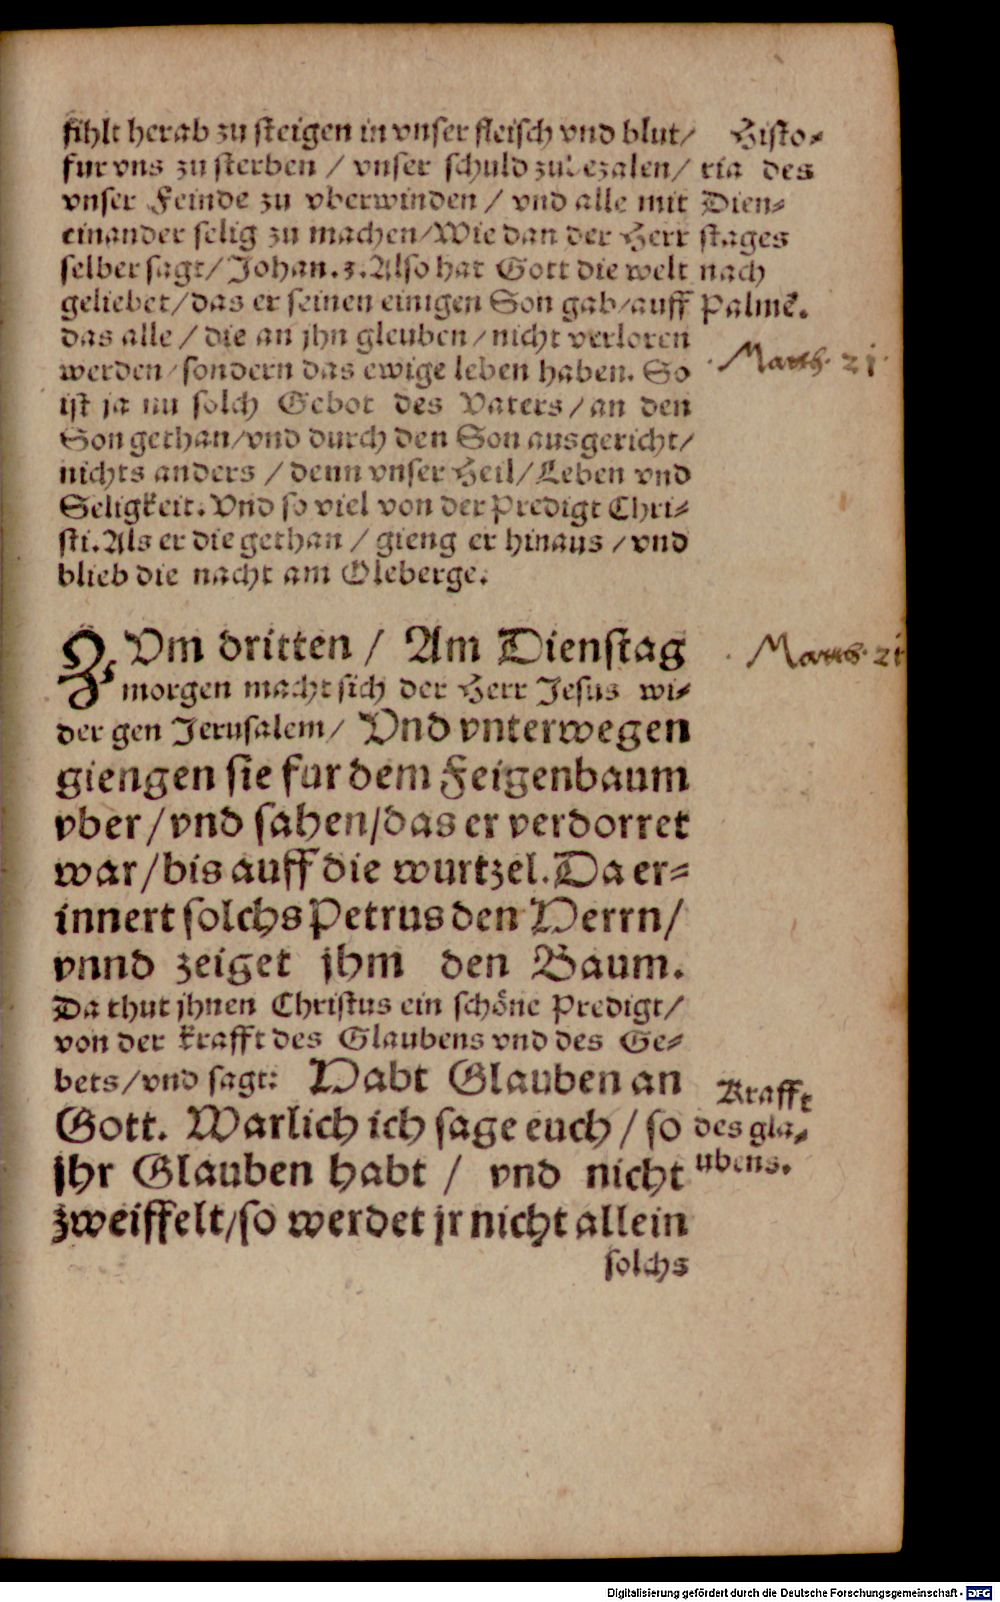 fihlt herab zu steigen in vnser fleisch vnd blut/
fur vns zu sterben / vnser schuld zubezalen/
vnser Feinde zu vberwinden / vnd alle mit
einander selig zu machen/Wie dan der Herr
selber sagt/Johan.3.Also hat Gott die welt
geliebet/das er seinen einigen Son gab/auff
das alle / die an jhn gleuben/nicht verloren
werden/sondern das ewige leben haben. So
ist ja nu solch Gebot des Vaters/an den
Son gethan/vnd durch den Son ausgericht/
nichts anders / denn vnser Heil/Leben vnd
Seligkeit.Vnd so viel von der Predigt Chri-
sti.Als er die gethan / gieng er hinaus /vnd
blieb die nacht am Oleberge.
Histo-
ria des
Dien-
stages
nach
Palmē.
Matth. 21.
ZVm dritten / Am Dienstag
morgen macht sich der Herr Jesus wi-
der gen Jerusalem/ Vnd vnterwegen
giengen sie fur dem Feigenbaum
vber/vnd sahen/das er verdorret
war/bis auff die wurtzel.Da er-
innert solchs Petrus den HErrn/
vnnd zeiget jhm den Baum.
Da thut jhnen Christus ein schöne Predigt/
von der krafft des Glaubens vnd des Ge-
bets/vnd sagt: Habt Glauben an
Gott. Warlich ich sage euch/so
jhr Glauben habt / vnd nicht
zweiffelt/so werdet jr nicht allein
solchs
Matth. 21
Krafft
des gla-
ubens.
Digitalisierung gefördert durch die Deutsche Forschungsgemeinschaft - DFG